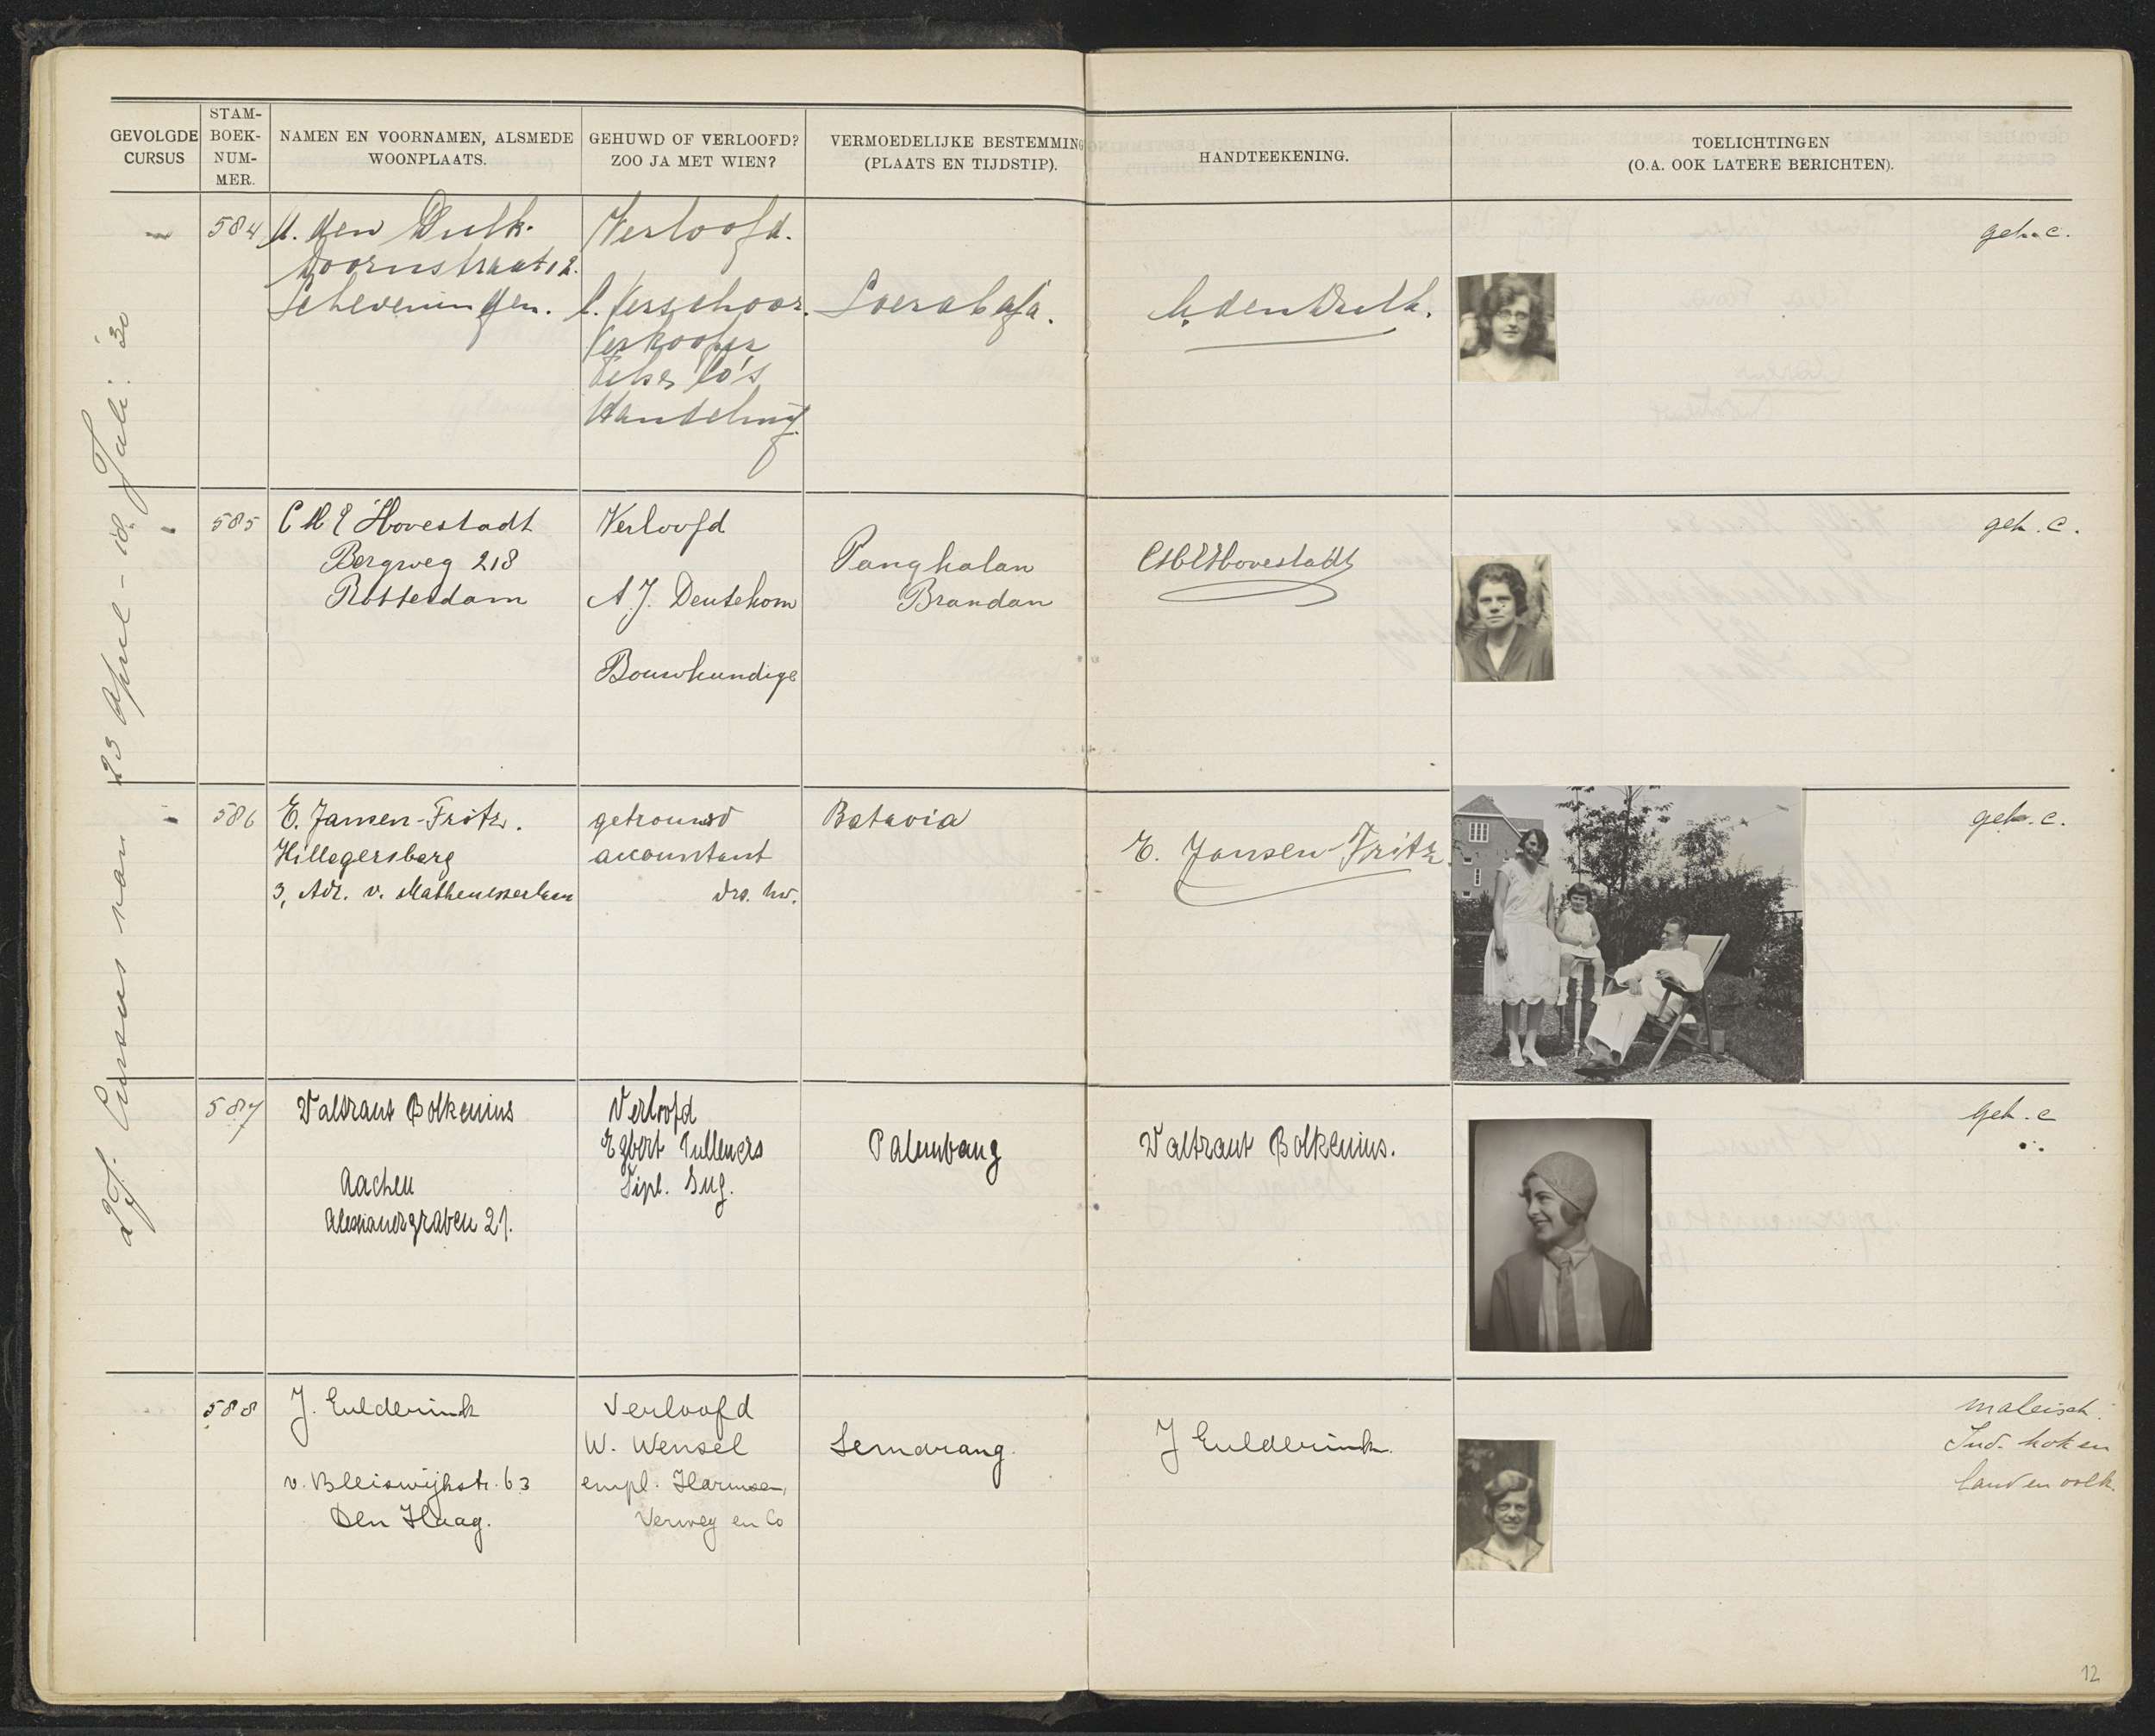 GEVOLGDE
CURSUS
STAM-
BOEK-
NUM-
MER.
NAMEN EN VOORNAMEN, ALSMEDE
WOONPLAATS.
GEHUWD OF VERLOOFD?
ZOO JA MET WIEN?
VERMOEDELIJKE BESTEMMING
(PLAATS EN TIJDSTIP).
HANDTEEKENING.
TOELICHTINGEN
(O.A. OOK LATERE BERICHTEN).
Cursus van 23 April - 18 Juli '30
584
den Dulk.
Doornstraat 12.
Scheveningen.
Verloofd.
Verschoor.
Verkooper
Handelmij.
Soerabaja.
den Dulk.
geh. c.
585
C H E Hovestadt
Bergweg 218
Rotterdam
Verloofd
A. J. Deutekom
Bouwkundige
Pangkalan
Brandan
CHEHovestadt
geh. c.
586
E. Jansen-Fritz.
Hillegersberg
3, Adr. v. Mathenesserlaan
getrouwd
accountant
drs. hw.
Batavia
E. Jansen-Fritz
geh. c.
587
Valtraut Bolkenius
Aachen
Alexianergraben 21.
Verloofd
Egbert Tulleners
Dipl. Ing.
Palembang
Valtraut Bolkenius.
geh. c
588
J. Eulderink
v. Bleiswijkstr. 63
Den Haag.
Verloofd
W. Wensel
empl. Harmsen,
Verwey en Co
Semarang.
J Eulderink.
maleisch.
Ind. koken
land en volk.
12